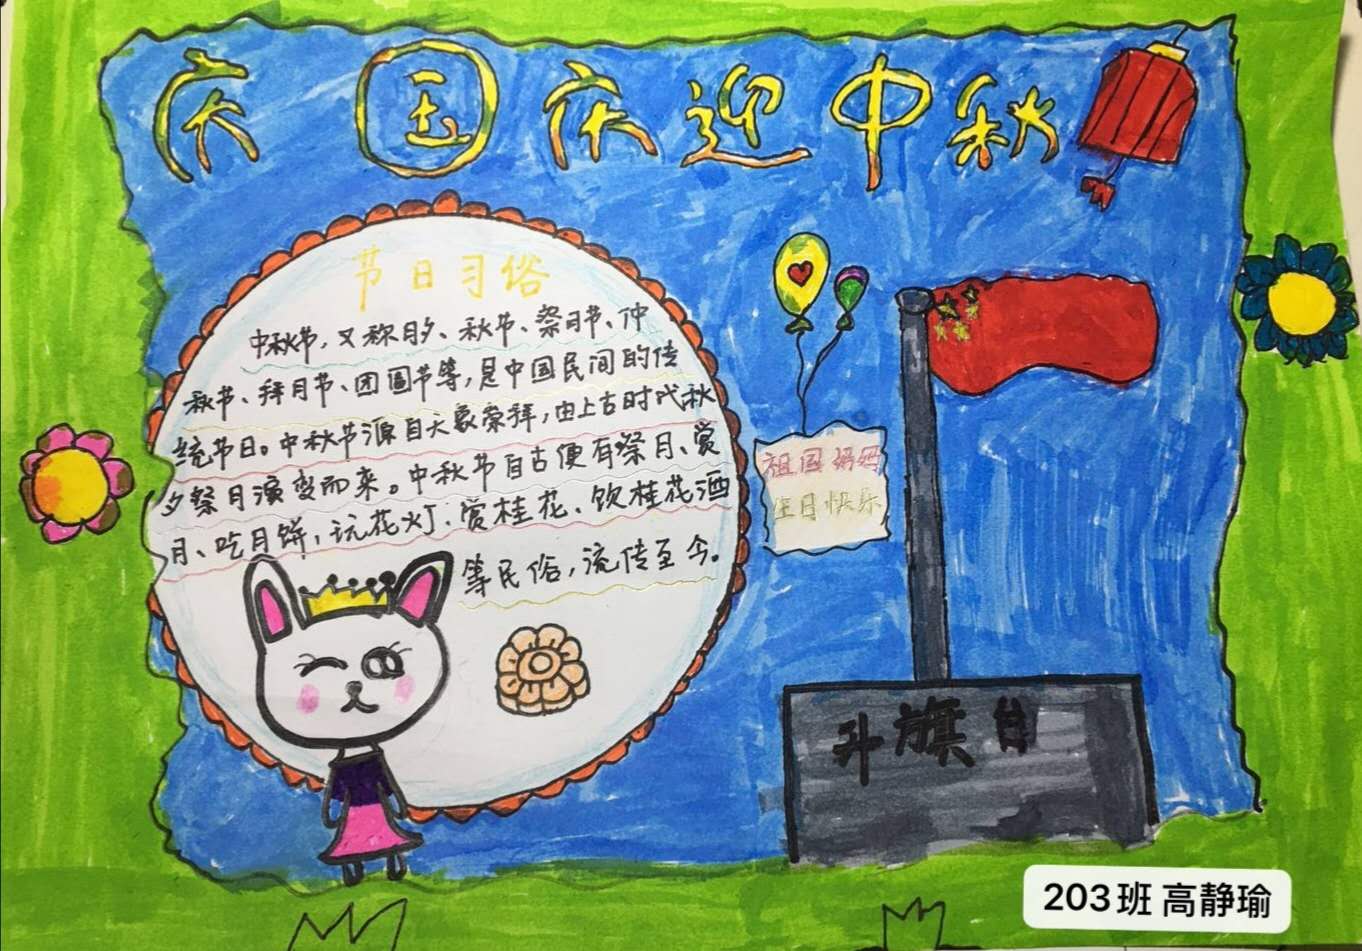 庆国庆迎中秋
节日习俗
中秋节，又称月夕、秋节、祭月节、仲
秋节、拜月节、团圆节等，是中国民间的传
统节日。中秋节源自天象崇拜，由上古时代秋
夕祭月演变而来。中秋节自古便有祭月、赏
月、吃月饼，玩花灯、赏桂花、饮桂花酒
等民俗，流传至今。
祖国妈妈
生日快乐
升旗台
203班 高静瑜